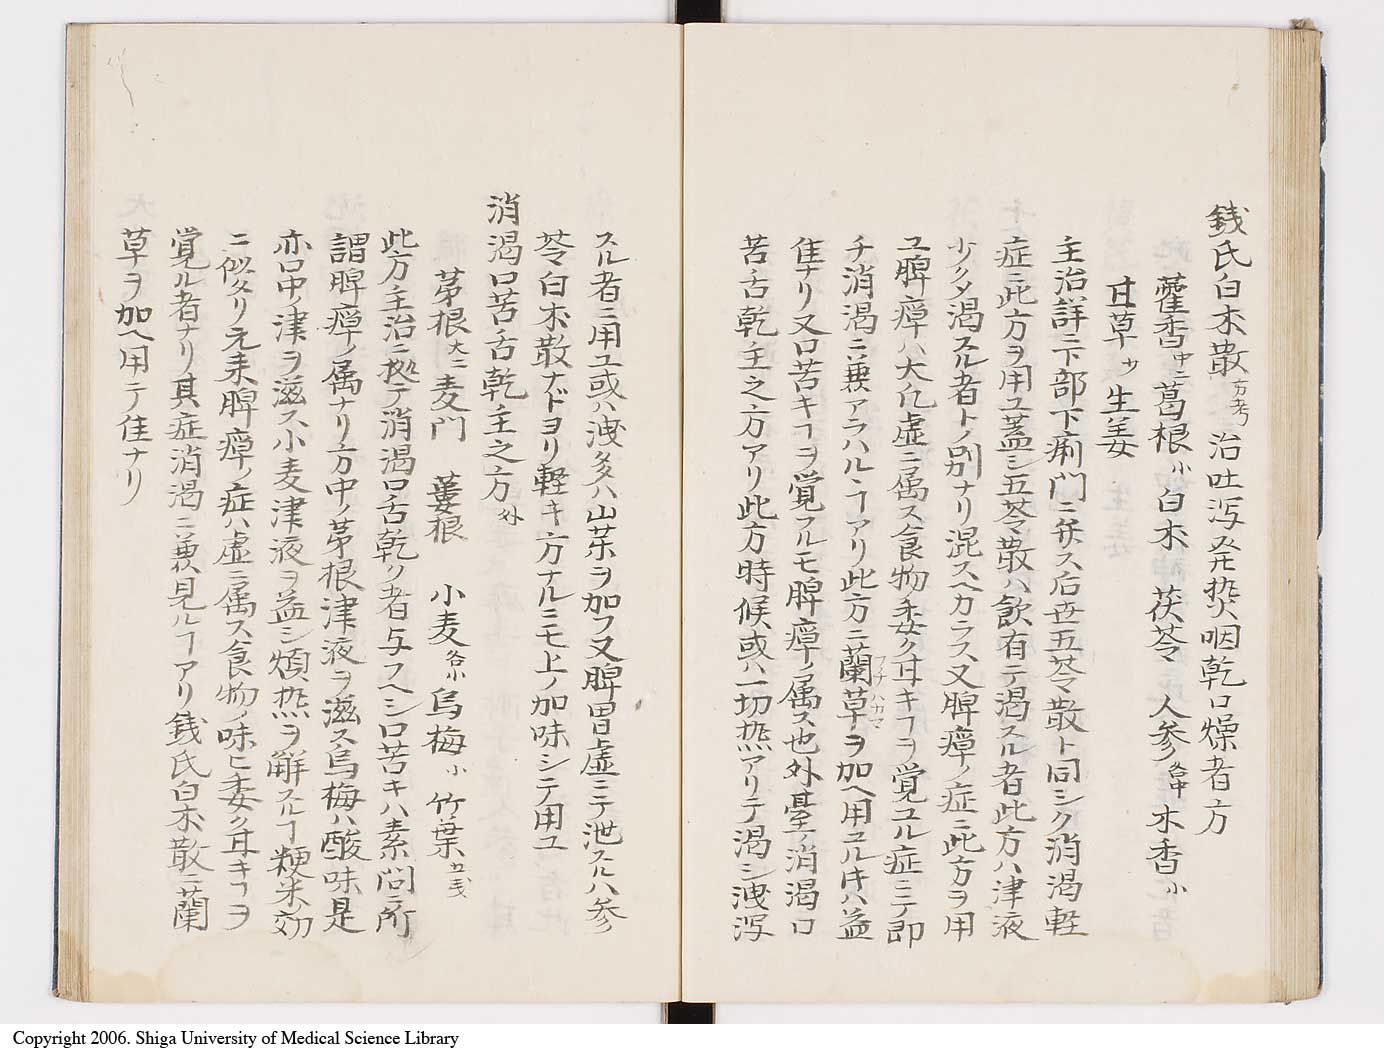 銭氏白朮散方考 治吐瀉発熱咽乾口燥者方
藿香中ニ葛根小 白朮 茯苓 人参各中 木香小
甘草少 生姜
主治詳ニ下部下痢門ニ弁ス后世五苓散ト同シク消渇軽
症ニ此方ヲ用ユ蓋シ五苓散ハ飲有テ渇スル者此方ハ津液
少クノ渇スル者トノ別ナリ混スヘカラス又脾癉ノ症ニ此方ヲ用
ユ脾癉ハ大凡虚ニ属ス食物味ク甘キヿヲ覚ユル症ニテ即
チ消渇ニ兼アラハルヽヿアリ此方ニ蘭草フチハカマヲ加ヘ用ユルキハ益
佳ナリ又口苦キヿヲ覚フルモ脾癉ノ属ス也外臺ノ消渇口
苦舌乾主之方アリ此方時候或ハ一切熱アリテ渇シ洩瀉
スル者ニ用ユ或ハ洩多ハ山茱ヲ加フ又脾胃虚ニテ泄スルハ参
苓白朮散ナドヨリ軽キ方ナルニモ上ノ加味シテ用ユ
消渇口苦舌乾主之方外
茅根大ニ麦門 蔞根 小麦各小烏梅小 竹葉五戋
此方主治ニ拠テ消渇口舌乾ク者与フヘシ口苦キハ素問ニ所
謂脾癉ノ属ナリ方中ノ茅根津液ヲ滋ス烏梅ハ酸味是
亦口中ノ津ヲ滋ス小麦津液ヲ益シ煩熱ヲ解スルヿ粳米効
ニ似タリ元来脾癉ノ症ハ虚ニ属ス食物ノ味ヒ委ク甘キヿヲ
覚ル者ナリ其症消渇ニ兼見ルヿアリ銭氏白朮散ニ蘭
草ヲ加ヘ用テ佳ナリ
Copyright 2006. Shiga University of Medical Science Library